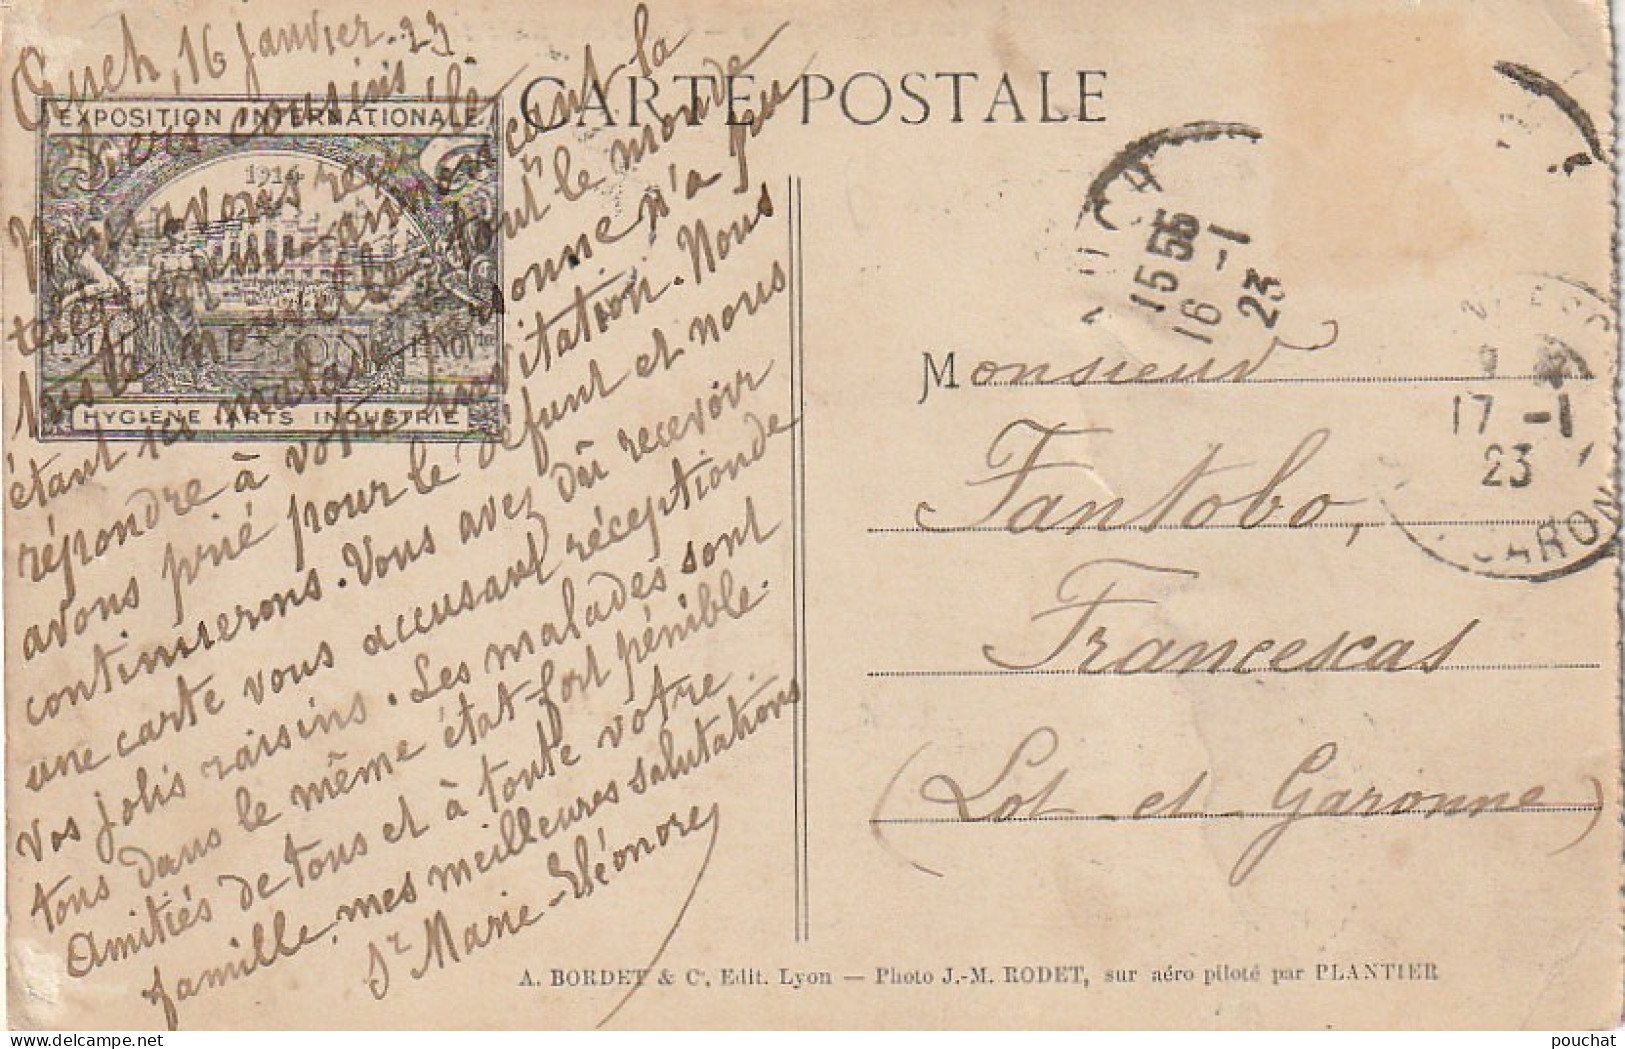 Auch, 16 Janvier. 23
Chers cousins
Nous avons reçu la
triste nouvelle tout le monde
étant si malade personne n'a pu
répondre à votre invitation. Nous
avons prié pour le défunt et nous
continuerons. Vous avez dû recevoir
une carte vous accusant réception de
vos jolis raisins. Les malades sont
tous dans le même état fort pénible.
Amitiés de tous et à toute votre
famille, mes meilleures salutations
Sr Marie-Eléonore
EXPOSITION INTERNATIONALE
1914
1er Novbre
HYGIÈNE ARTS INDUSTRIE
CARTE POSTALE
AUCH
15 55
16 -1
23
17 -1
23
GARONNE
Monsieur
Fantobo,
Francescas
(Lot-et-Garonne)
A. BORDET & Cie, Edit. Lyon — Photo J.-M. RODET, sur aéro piloté par PLANTIER
pouchat